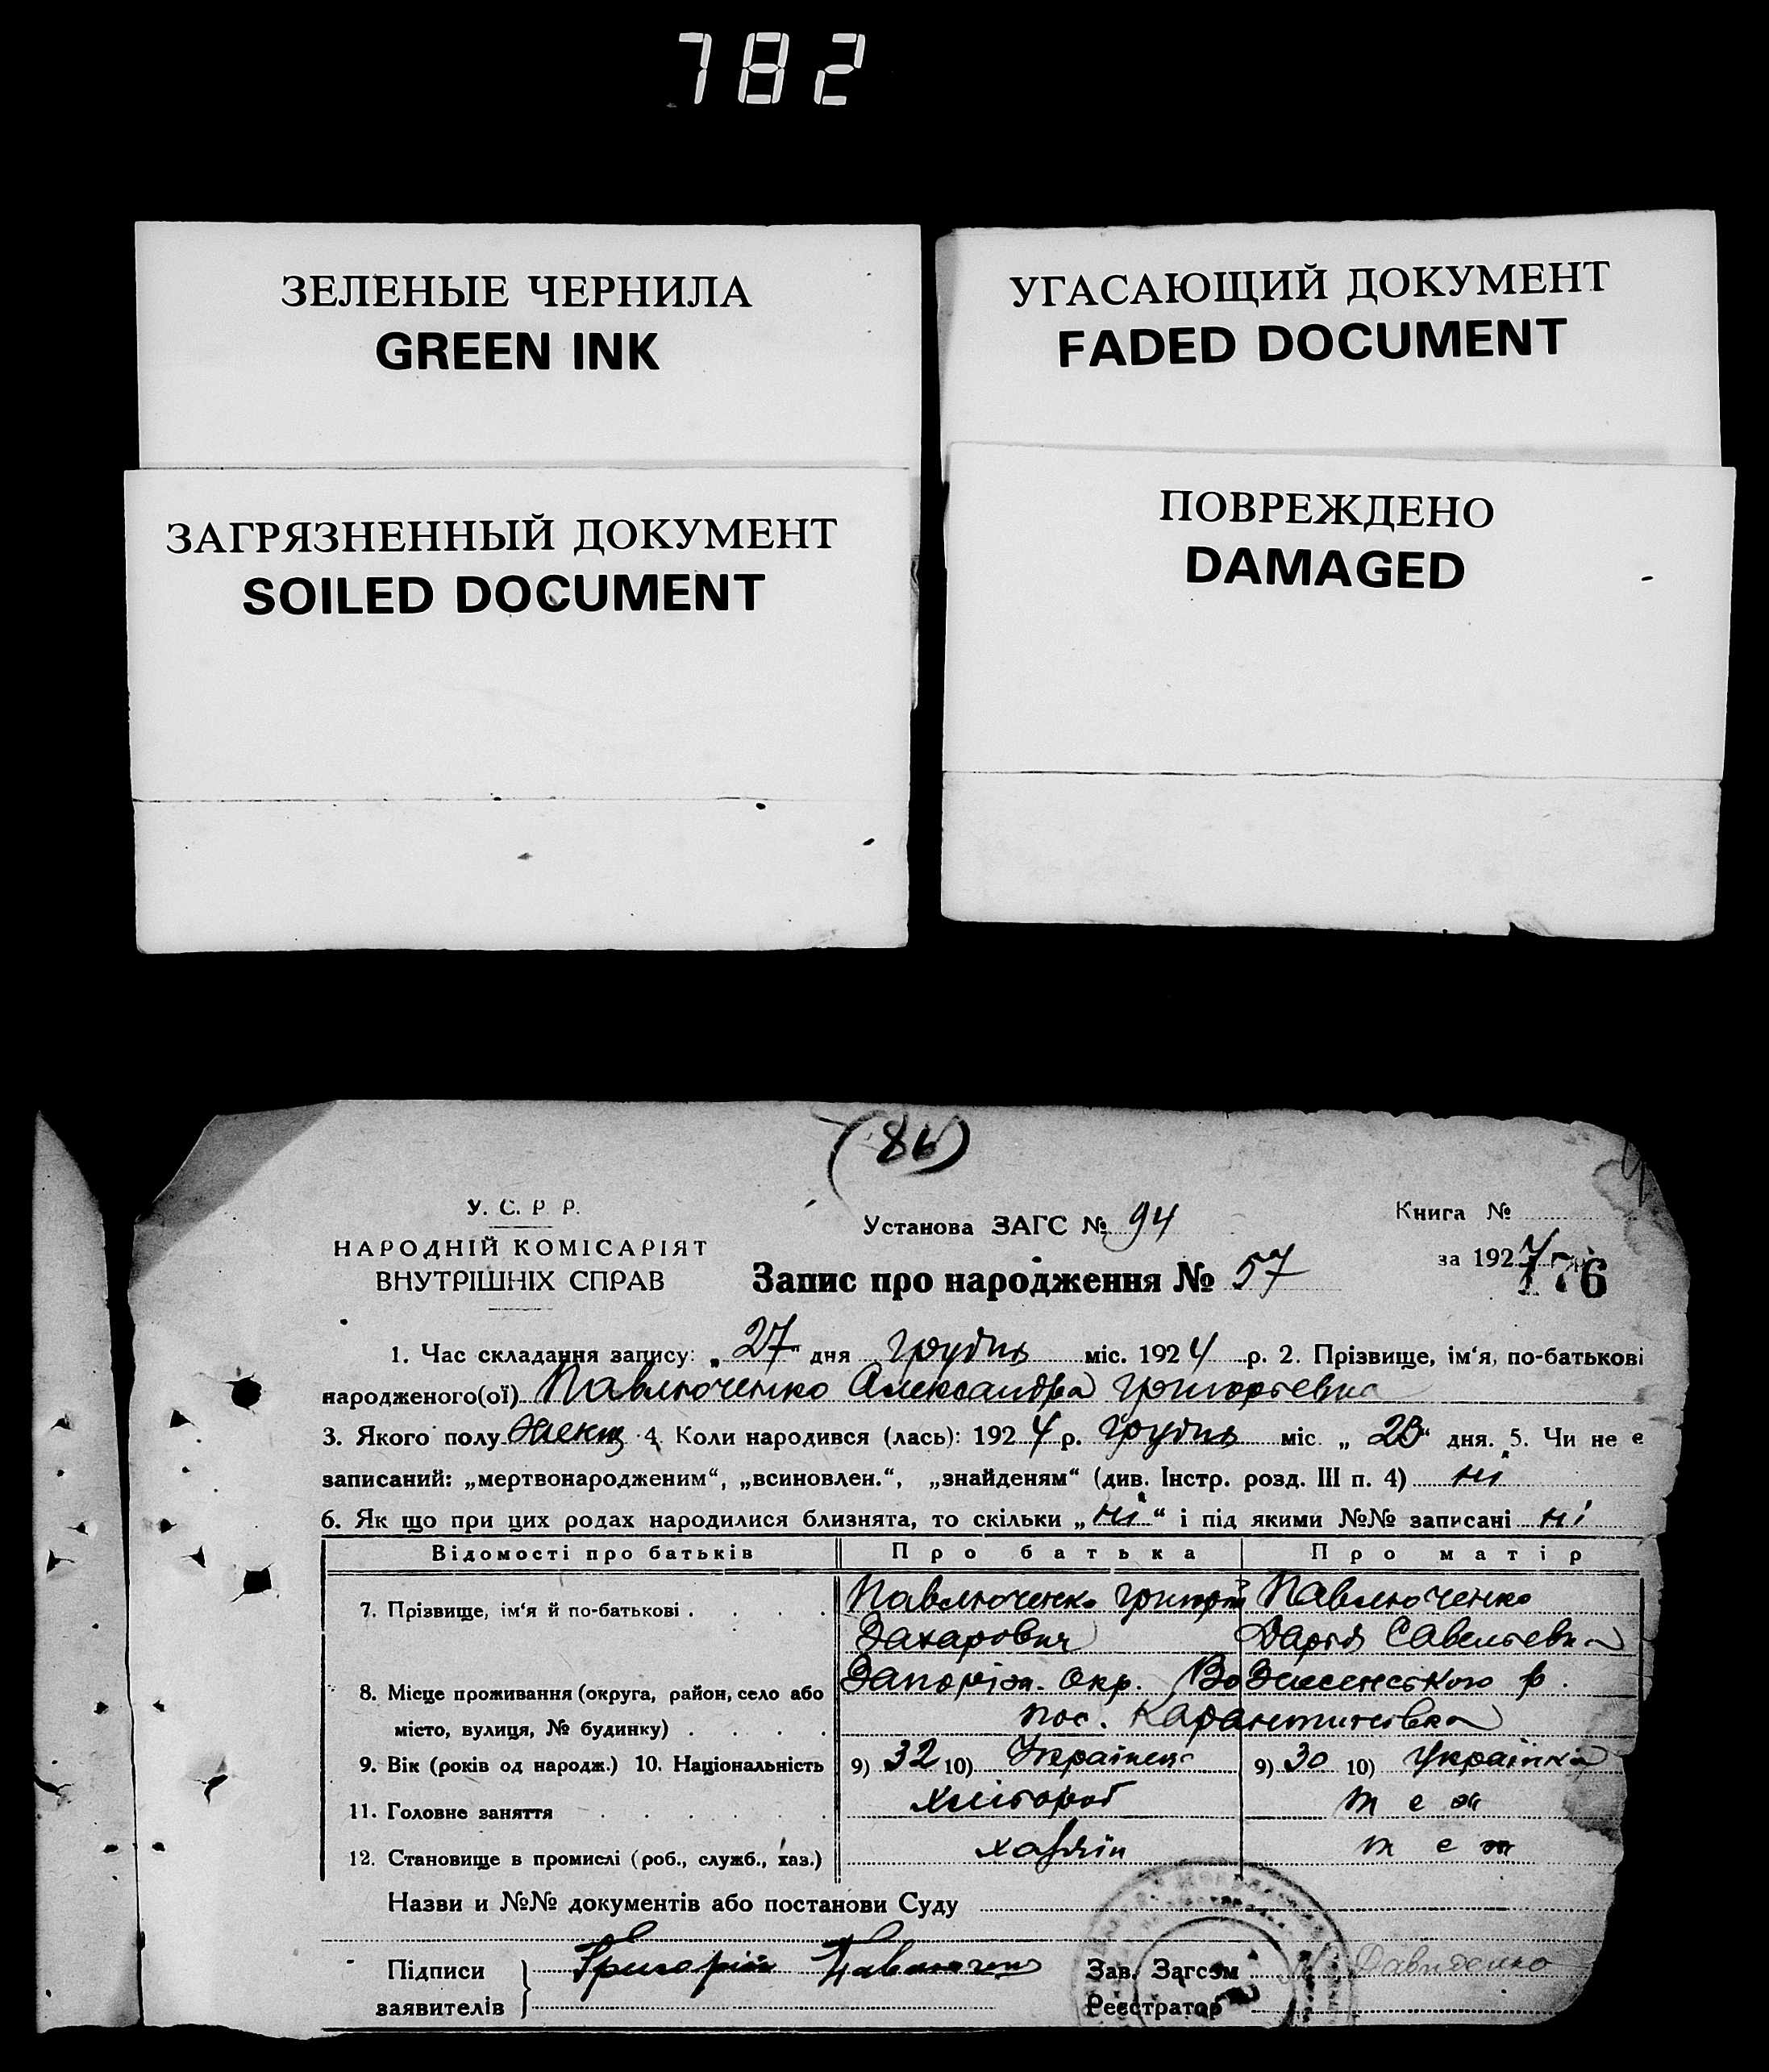 782
ЗЕЛЕНЫЕ ЧЕРНИЛА
GREEN INK
УГАСАЮЩИЙ ДОКУМЕНТ
FADED DOCUMENT
ЗАГРЯЗНЕННЫЙ ДОКУМЕНТ
SOILED DOCUMENT
ПОВРЕЖДЕНО
DAMAGED
(86)
У. С. Р. Р.
НАРОДНІЙ КОМІСАРІЯТ
ВНУТРІШНІХ СПРАВ
Установа ЗАГС № 94
Книга №
за 192
176
Запис про народження № 57
1. Час складання запису: „27“ дня грудня міс. 1924 р. 2. Прізвище, ім‘я, по-батькові
народженого(ої) Павлюченко Александра Григорьевна
3. Якого полу 4. Коли народився (лась): 1924 р. грудня міс. „23“ дня. 5. Чи не є
записаний: „мертвонародженим“, „всиновлен.“, „знайденям“ (див. Інстр. розд. III п. 4) ні
6. Як що при цих родах народилися близнята, то скільки „ні“ і під якими №№ записані ні
Відомості про батьків Про батька Про матір
7. Прізвище, ім‘я й по-батькові Павлюченко Григорій Павлюченко
Захарович Дарья Савельевна
8. Місце проживання (округа, район, село або Запоріз. Окр. Вознесенського р.
місто, вулиця, № будинку) пос. Карантиновка
9. Вік (років од народж.) 10. Національність 9) 32 10) Українець 9) 30 10) Українка
11. Головне заняття Хлібороб теж
12. Становище в промислі (роб., служб., хаз.) хазяїн теж
Назви и №№ документів або постанови Суду
Підписи Григорій Павлюченко Зав. Загсом Давиденко
заявителів Реєстратор